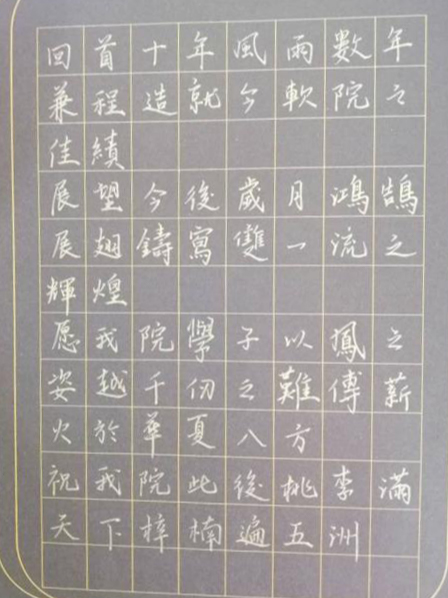 回首十年風雨數年
兼程造就今軟院之
佳績
展望今後歲月鴻鵠
展翅鑄寫雙一流之
輝煌
愿我院學子以鳳之
姿越千仞之難傳薪
火於華夏八方
祝我院此後桃李滿
天下梓楠遍五洲